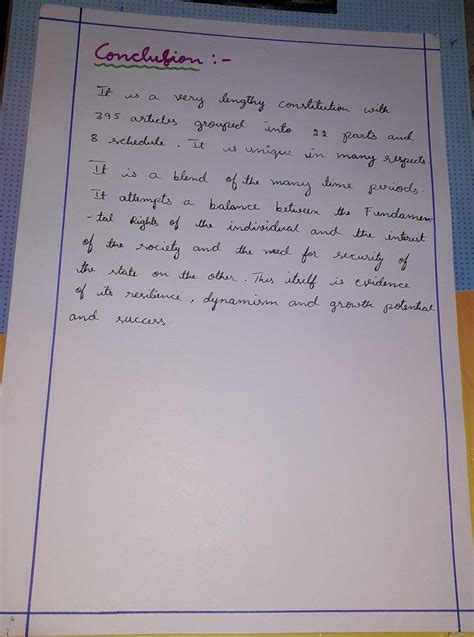 Conclusion :-
It is a very lengthy constitution with
395 articles grouped into 22 parts and
8 schedule. It is unique in many respects
It is a blend of the many time periods.
It attempts a balance between the Fundamen
-tal Rights of the individual and the interest
of the society and the need for security of
the state on the other. This itself is evidence
of its resilience, dynamism and growth potential
and success.